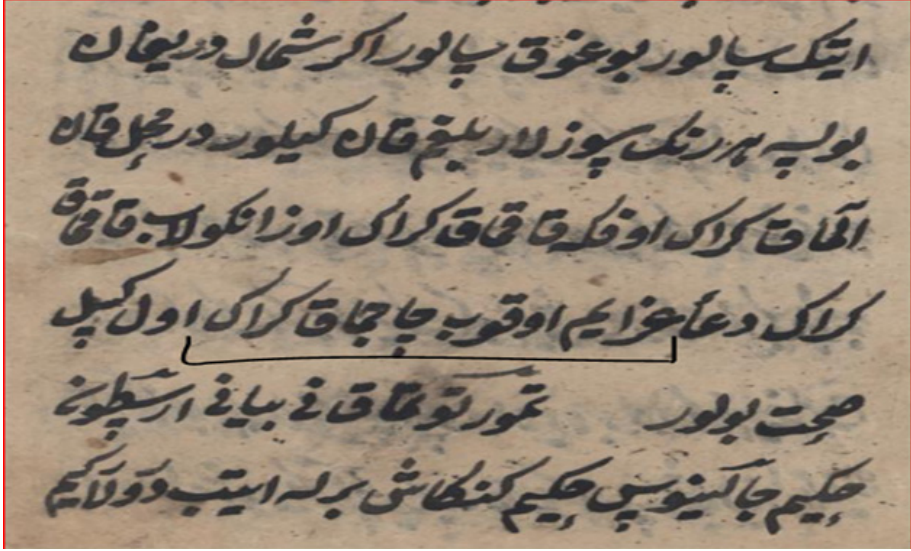 ایتیک سپالور بو عذوق سپالور اکر شمال دریغان
بولسه هر رنک سپوزلار بلیغم قان کیلور در مچل قان
الماقا کراک اوفکه قا قماقا کراک اوز انکولاب قاقماق
کراک دعا عزایم اوقوب چاچماقا کراک اول کسل
صحت بولور تمور کو تماق نی بیانی ارسطونی
حکیم جالینوس حکیم کنکاش برله ایتب دورلار کیم